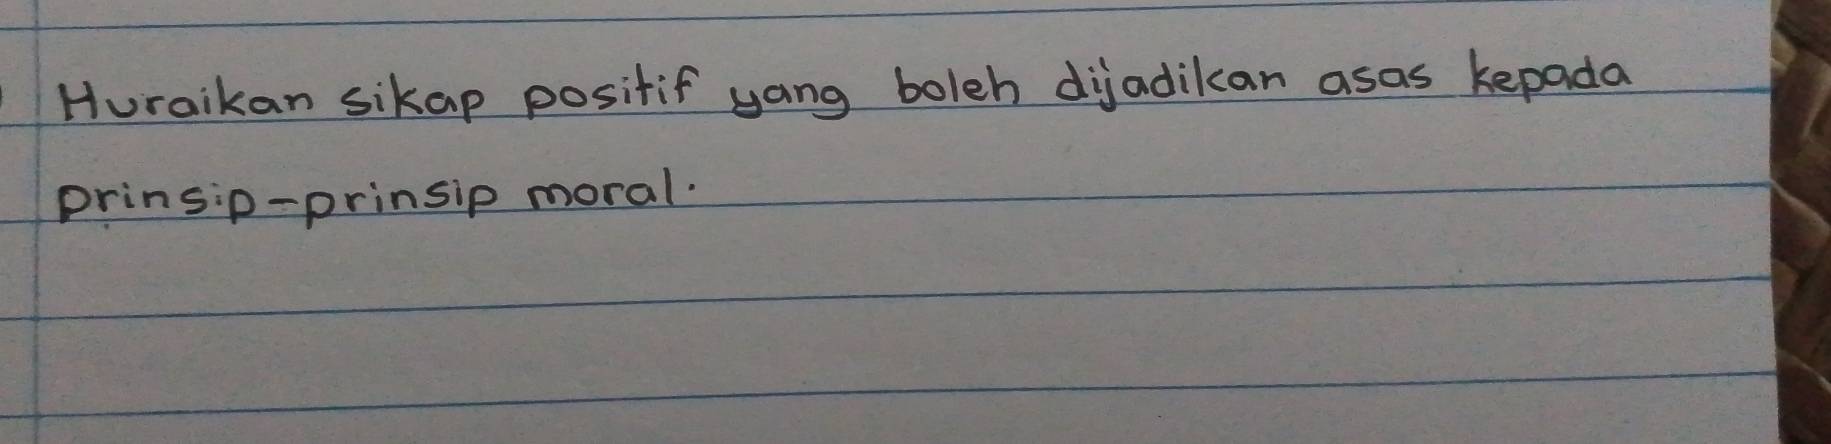 Huraikan sikap positif yang boleh dijadikan asas kepada
prinsip-prinsip moral.